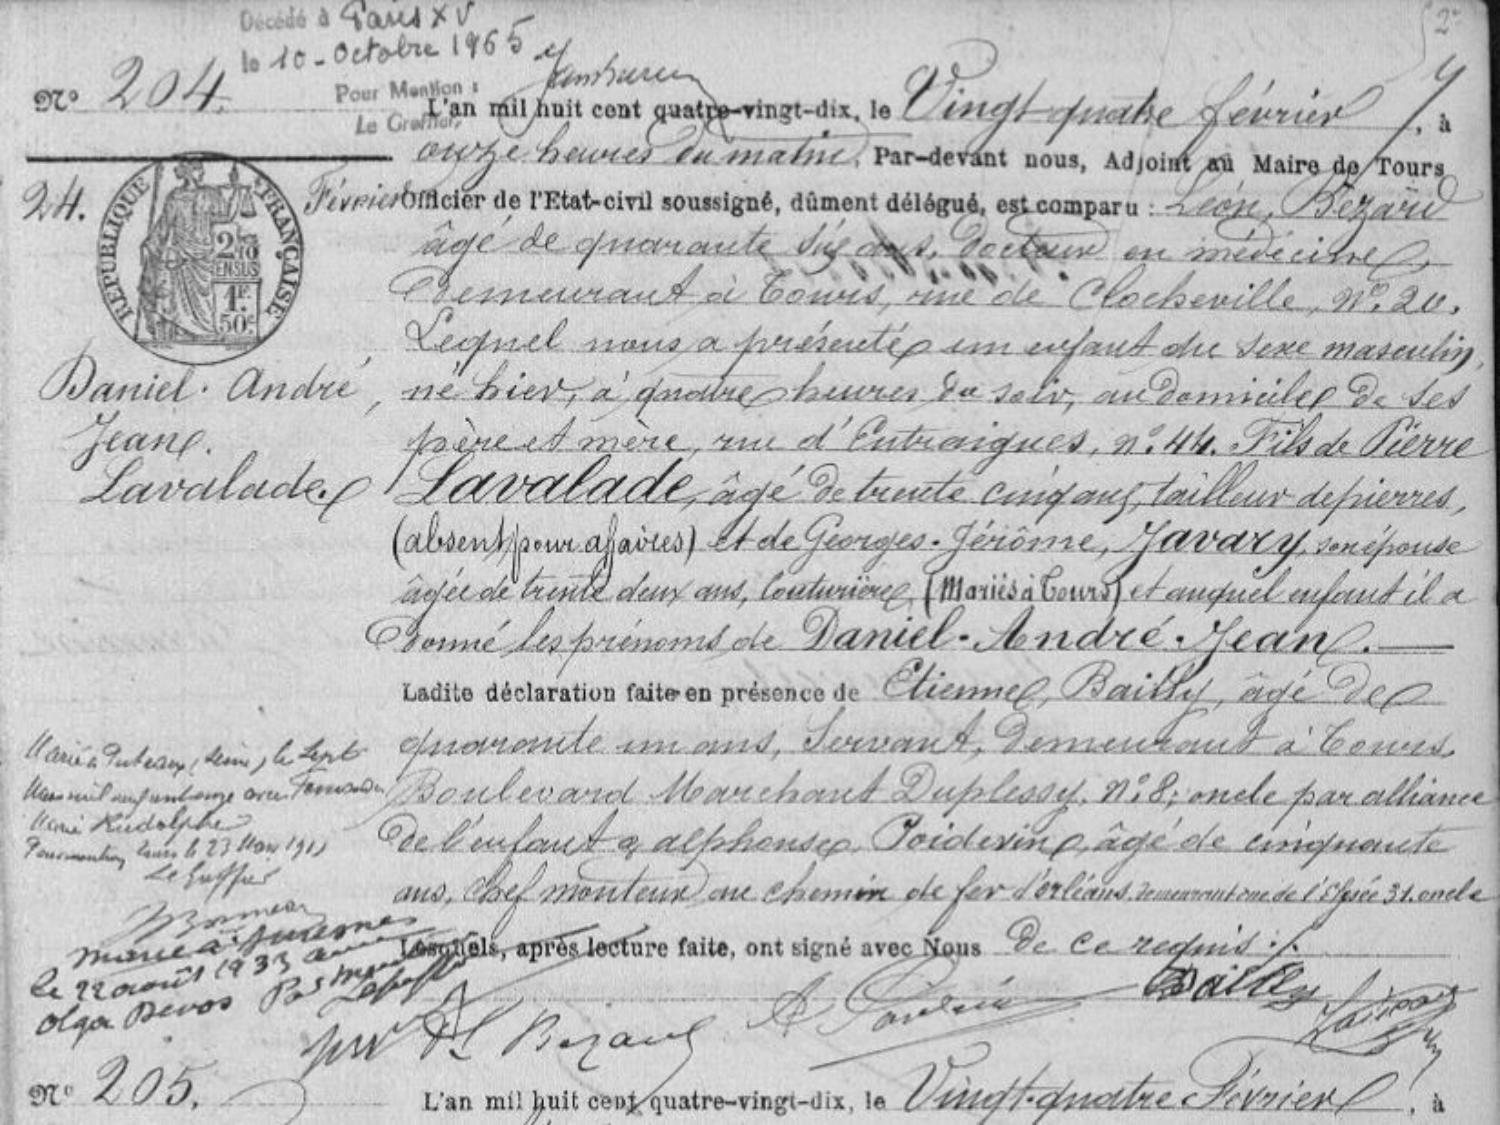 Décédé à Paris XV
le 10 - Octobre 1965
Pour Mention :
Le Greffier,
2
Nº 204.
24. Février
RÉPUBLIQUE FRANÇAISE
2/10
EN SUS
1F.
50c.
Daniel. André,
Jean.
Lavalade.
L'an mil huit cent quatre-vingt-dix, le Vingt quatre février, à
onze heures du matin, Par-devant nous, Adjoint au Maire de Tours
Officier de l'Etat-civil soussigné, dûment délégué, est comparu : Léon, Bézard
âgé de quarante six ans, Docteur en médecine,
Demeurant à Tours, rue de Clocheville, Nº. 20.
Lequel nous a présenté un enfant du sexe masculin,
né hier, à quatre heures du soir, au domicile de ses
père et mère, rue d'Entraigues, nº. 44. Fils de Pierre
Lavalade, âgé de trente cinq ans, tailleur de pierres,
(absent pour affaires) et de Georges-Jérôme, Javary, son épouse
âgée de trente deux ans, Couturière, (Mariés à Tours) et auquel enfant il a
donné les prénoms de Daniel-André-Jean.
Ladite déclaration faite en présence de Etienne, Bailly, âgé de
quarante un ans, Servant, demeurant à Tours,
Boulevard Marchant Duplessy, Nº. 8; oncle par alliance
de l'enfant & alphonse, Poidevin, âgé de cinquante
ans, Chef monteur au chemin de fer d'orléans, demeurant rue de l'Elysée 31. oncle
Lesquels, après lecture faite, ont signé avec Nous de ce requis ./.
Marié à Puteaux (Seine) le Sept
Mars mil neuf cent onze avec
Marie Rudolphe
Pour mention, Tours le 23 Mars 1911
Le Greffier
Marié à Suresnes
le 22 août 1933 avec
Olga Devos
Bailly
L Bézard
Nº 205.
L'an mil huit cent quatre-vingt-dix, le Vingt-quatre Février, à